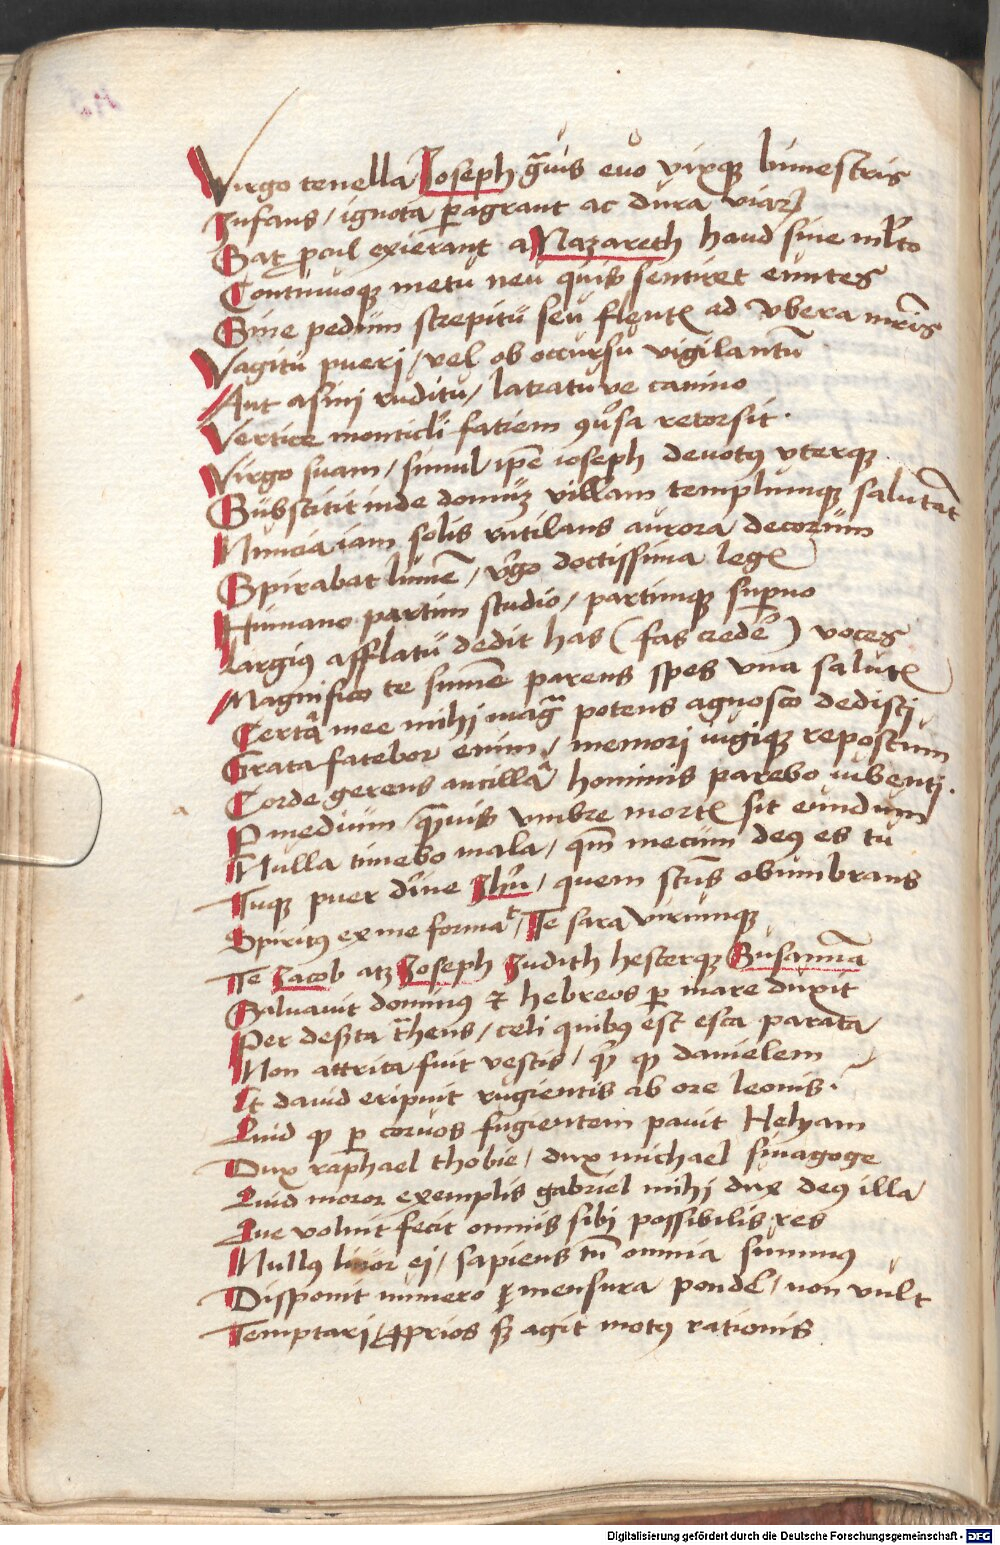 Virgo tenella Ioseph gͣuis euo vixqꝫ bimestris
Infans / ignota ꝑagrant ac dura viaꝝ
Sat ꝓcul exierant a Nazareth haud sine ml̓to
Continuoqꝫ metu neu quis sentiret euntes
Siue pedum strepitū seu flentꝭ ad vbera mr̄is
Vagitū pueri / vel ob occursū vigilantū
Aut asini ruditū / latratu ve canino
Vertice monticli faciem ꝯuͥsa retorsit .
Virgo suam / simul ip̄e ioseph deuotꝰ vterqꝫ
Substitit inde domūꝫ villam templumqꝫ salutāt
Nuncia iam solis rutilans aurora decorum
Spirabat lumē / vͥgo doctissima legꝭ
Humano partim studio / partimqꝫ suꝑno
Largiꝰ afflatū dedit has (fas credeͤ) voces
Magnifico te summe parens spes vna salutꝭ
Certa mee mihi magͣ potens agnosco dedisti
Grata fatebor enim / memori iugiqꝫ repostum
Corde gerens ancillā hominis parebo iubenti .
P medium qͣuis vmbre mortꝭ sit eundum
Nulla timebo mala / qm̄ mecum deꝰ es tu
Tuqꝫ puer diͥne Ihū / quem sctūs obumbrans
Spiritꝰ ex me format / Te sara virumqꝫ
Te Iacob atqꝫ Ioseph Iudith hesterqꝫ Susanna
Saluauit dominꝰ & hebreos ꝑ mare duxit
Per des̄ta tͣhens / celi quibꝰ est esca parata
Non attrita fuit vestis / qͥ ꝙ danielem
Et dauid eripuit rugientis ab ore leonis .
Quid ꝙ ꝑ coruos fugientem pauit Helyam
Dux raphael thobie / dux michael sinagoge
Quid moror exemplis gabriel mihi dux deꝰ illa
Que voluit fecit omnis sibi possibilis res
Nullꝰ liuor ei / sapiens tn̄ omnia summus
Disponit numero & mensura pondē / non vult
Temptari / ꝓprios sꝫ agit motꝰ rationis
Digitalisierung gefördert durch die Deutsche Forschungsgemeinschaft - DFG